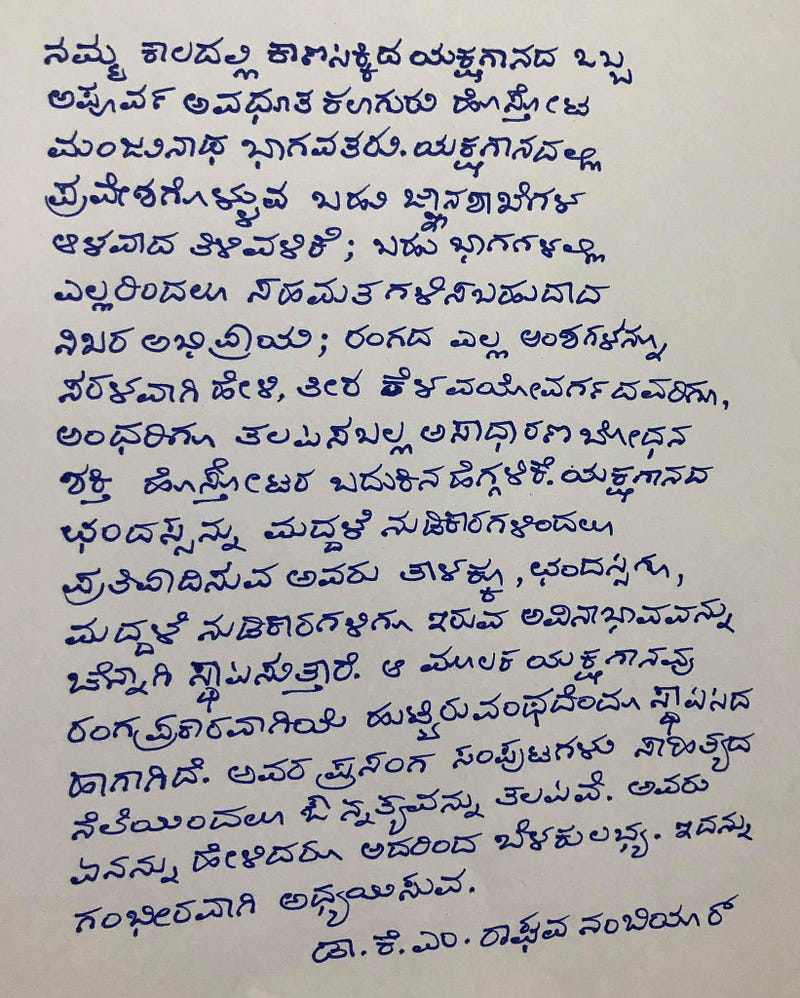 ನಮ್ಮ ಕಾಲದಲ್ಲಿ ಕಾಣಸಿಕ್ಕಿದ ಯಕ್ಷಗಾನದ ಒಬ್ಬ
ಅಪೂರ್ವ ಅವಧೂತ ಕಲಾಗುರು ಹೊಸ್ತೋಟ
ಮಂಜುನಾಥ ಭಾಗವತರು. ಯಕ್ಷಗಾನದಲ್ಲಿ
ಪ್ರವೇಶಗೊಳ್ಳುವ ಬಹು ಜ್ಞಾನಶಾಖೆಗಳ
ಆಳವಾದ ತಿಳಿವಳಿಕೆ; ಬಹು ಭಾಗಗಳಲ್ಲಿ
ಎಲ್ಲರಿಂದಲೂ ಸಹಮತಗಳಿಸಬಹುದಾದ
ನಿಖರ ಅಭಿಪ್ರಾಯ; ರಂಗದ ಎಲ್ಲ ಅಂಶಗಳನ್ನು
ಸರಳವಾಗಿ ಹೇಳಿ, ತೀರ ಕೆಳ ವಯೋವರ್ಗದವರಿಗೂ,
ಅಂಧರಿಗೂ ತಲಪಿಸಬಲ್ಲ ಅಸಾಧಾರಣ ಬೋಧನ
ಶಕ್ತಿ ಹೊಸ್ತೋಟರ ಬದುಕಿನ ಹೆಗ್ಗಳಿಕೆ. ಯಕ್ಷಗಾನದ
ಛಂದಸ್ಸನ್ನು ಮದ್ದಳೆ ನುಡಿಕಾರಗಳಿಂದಲೂ
ಪ್ರತಿಪಾದಿಸುವ ಅವರು ತಾಳಕ್ಕೂ, ಛಂದಸ್ಸಿಗೂ,
ಮದ್ದಳೆ ನುಡಿಕಾರಗಳಿಗೂ ಇರುವ ಅವಿನಾಭಾವವನ್ನು
ಚೆನ್ನಾಗಿ ಸ್ಥಾಪಿಸುತ್ತಾರೆ. ಆ ಮೂಲಕ ಯಕ್ಷಗಾನವು
ರಂಗಪ್ರಕಾರವಾಗಿಯೇ ಹುಟ್ಟಿರುವಂಥದೆಂದೂ ಸ್ಥಾಪಿಸಿದ
ಹಾಗಾಗಿದೆ. ಅವರ ಪ್ರಸಂಗ ಸಂಪುಟಗಳು ಸಾಹಿತ್ಯದ
ನೆಲೆಯಿಂದಲೂ ಔನ್ನತ್ಯವನ್ನು ತಲಪಿವೆ. ಅವರು
ಏನನ್ನು ಹೇಳಿದರೂ ಅದರಿಂದ ಬೆಳಕು ಲಭ್ಯ. ಇದನ್ನು
ಗಂಭೀರವಾಗಿ ಅಧ್ಯಯಿಸುವ.
ಡಾ. ಕೆ. ಎಂ. ರಾಘವ ನಂಬಿಯಾರ್